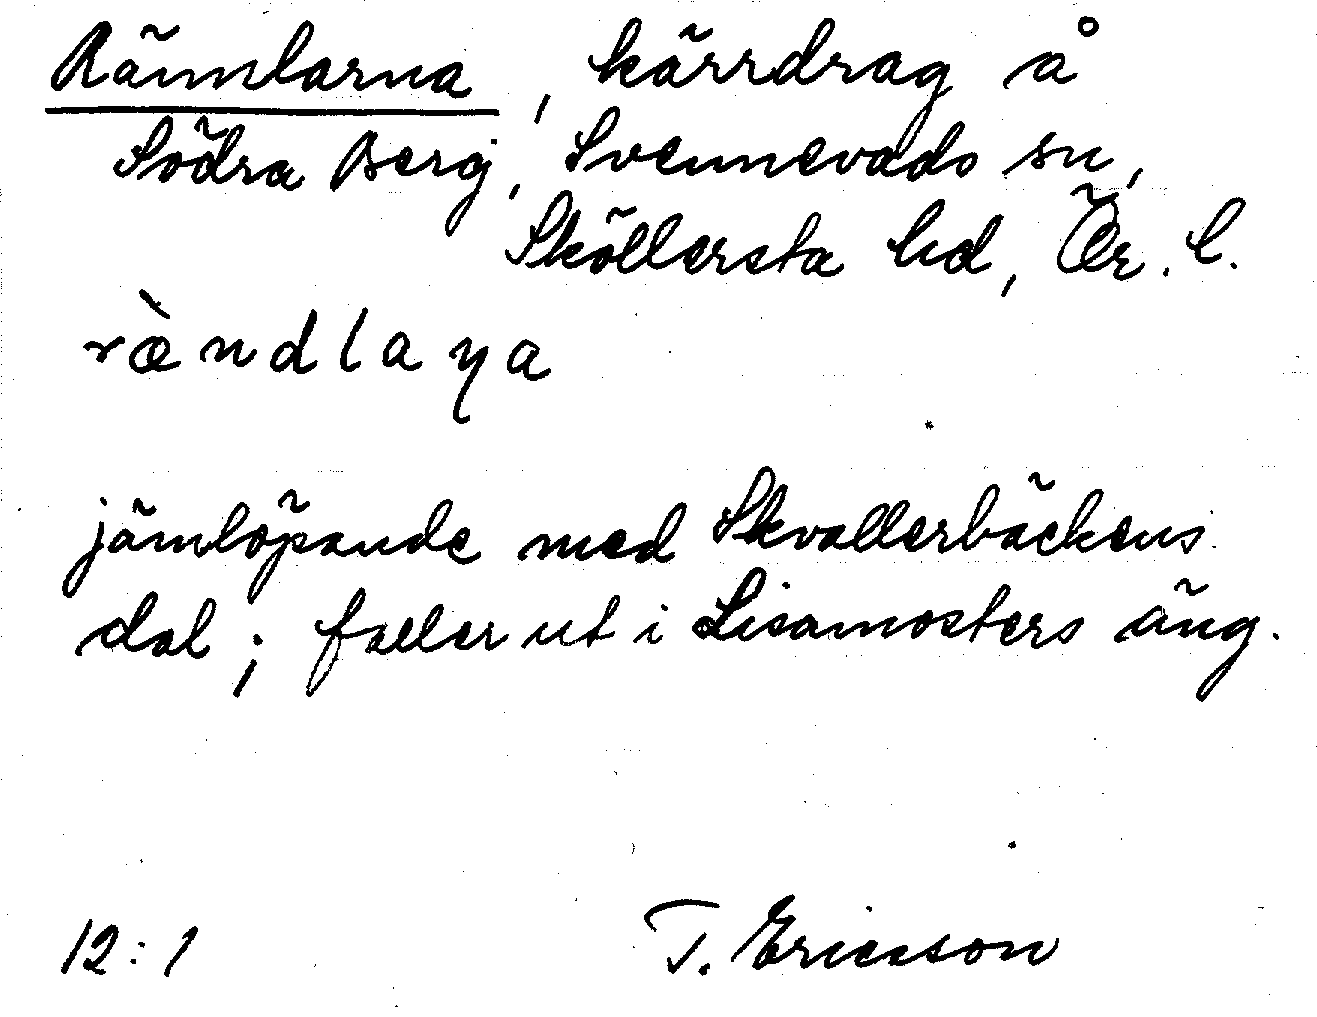 Rännlarna, kärrdrag å
Södra Berg, Svennevads sn,
Sköllersta hd, Ör. l.
ræ̀ndlaꞃa
jämlöpande med Skvallerbäckens
dal; faller ut i Lisamosters äng.
12:1 T. Ericsson